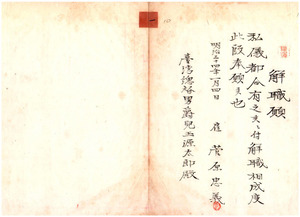 解職願
私儀都合有之候ニ付解職相成度
此段奉願候也
明治三十四年一月四日
雇 菅原忠義
臺湾總督男爵兒玉源太郎殿